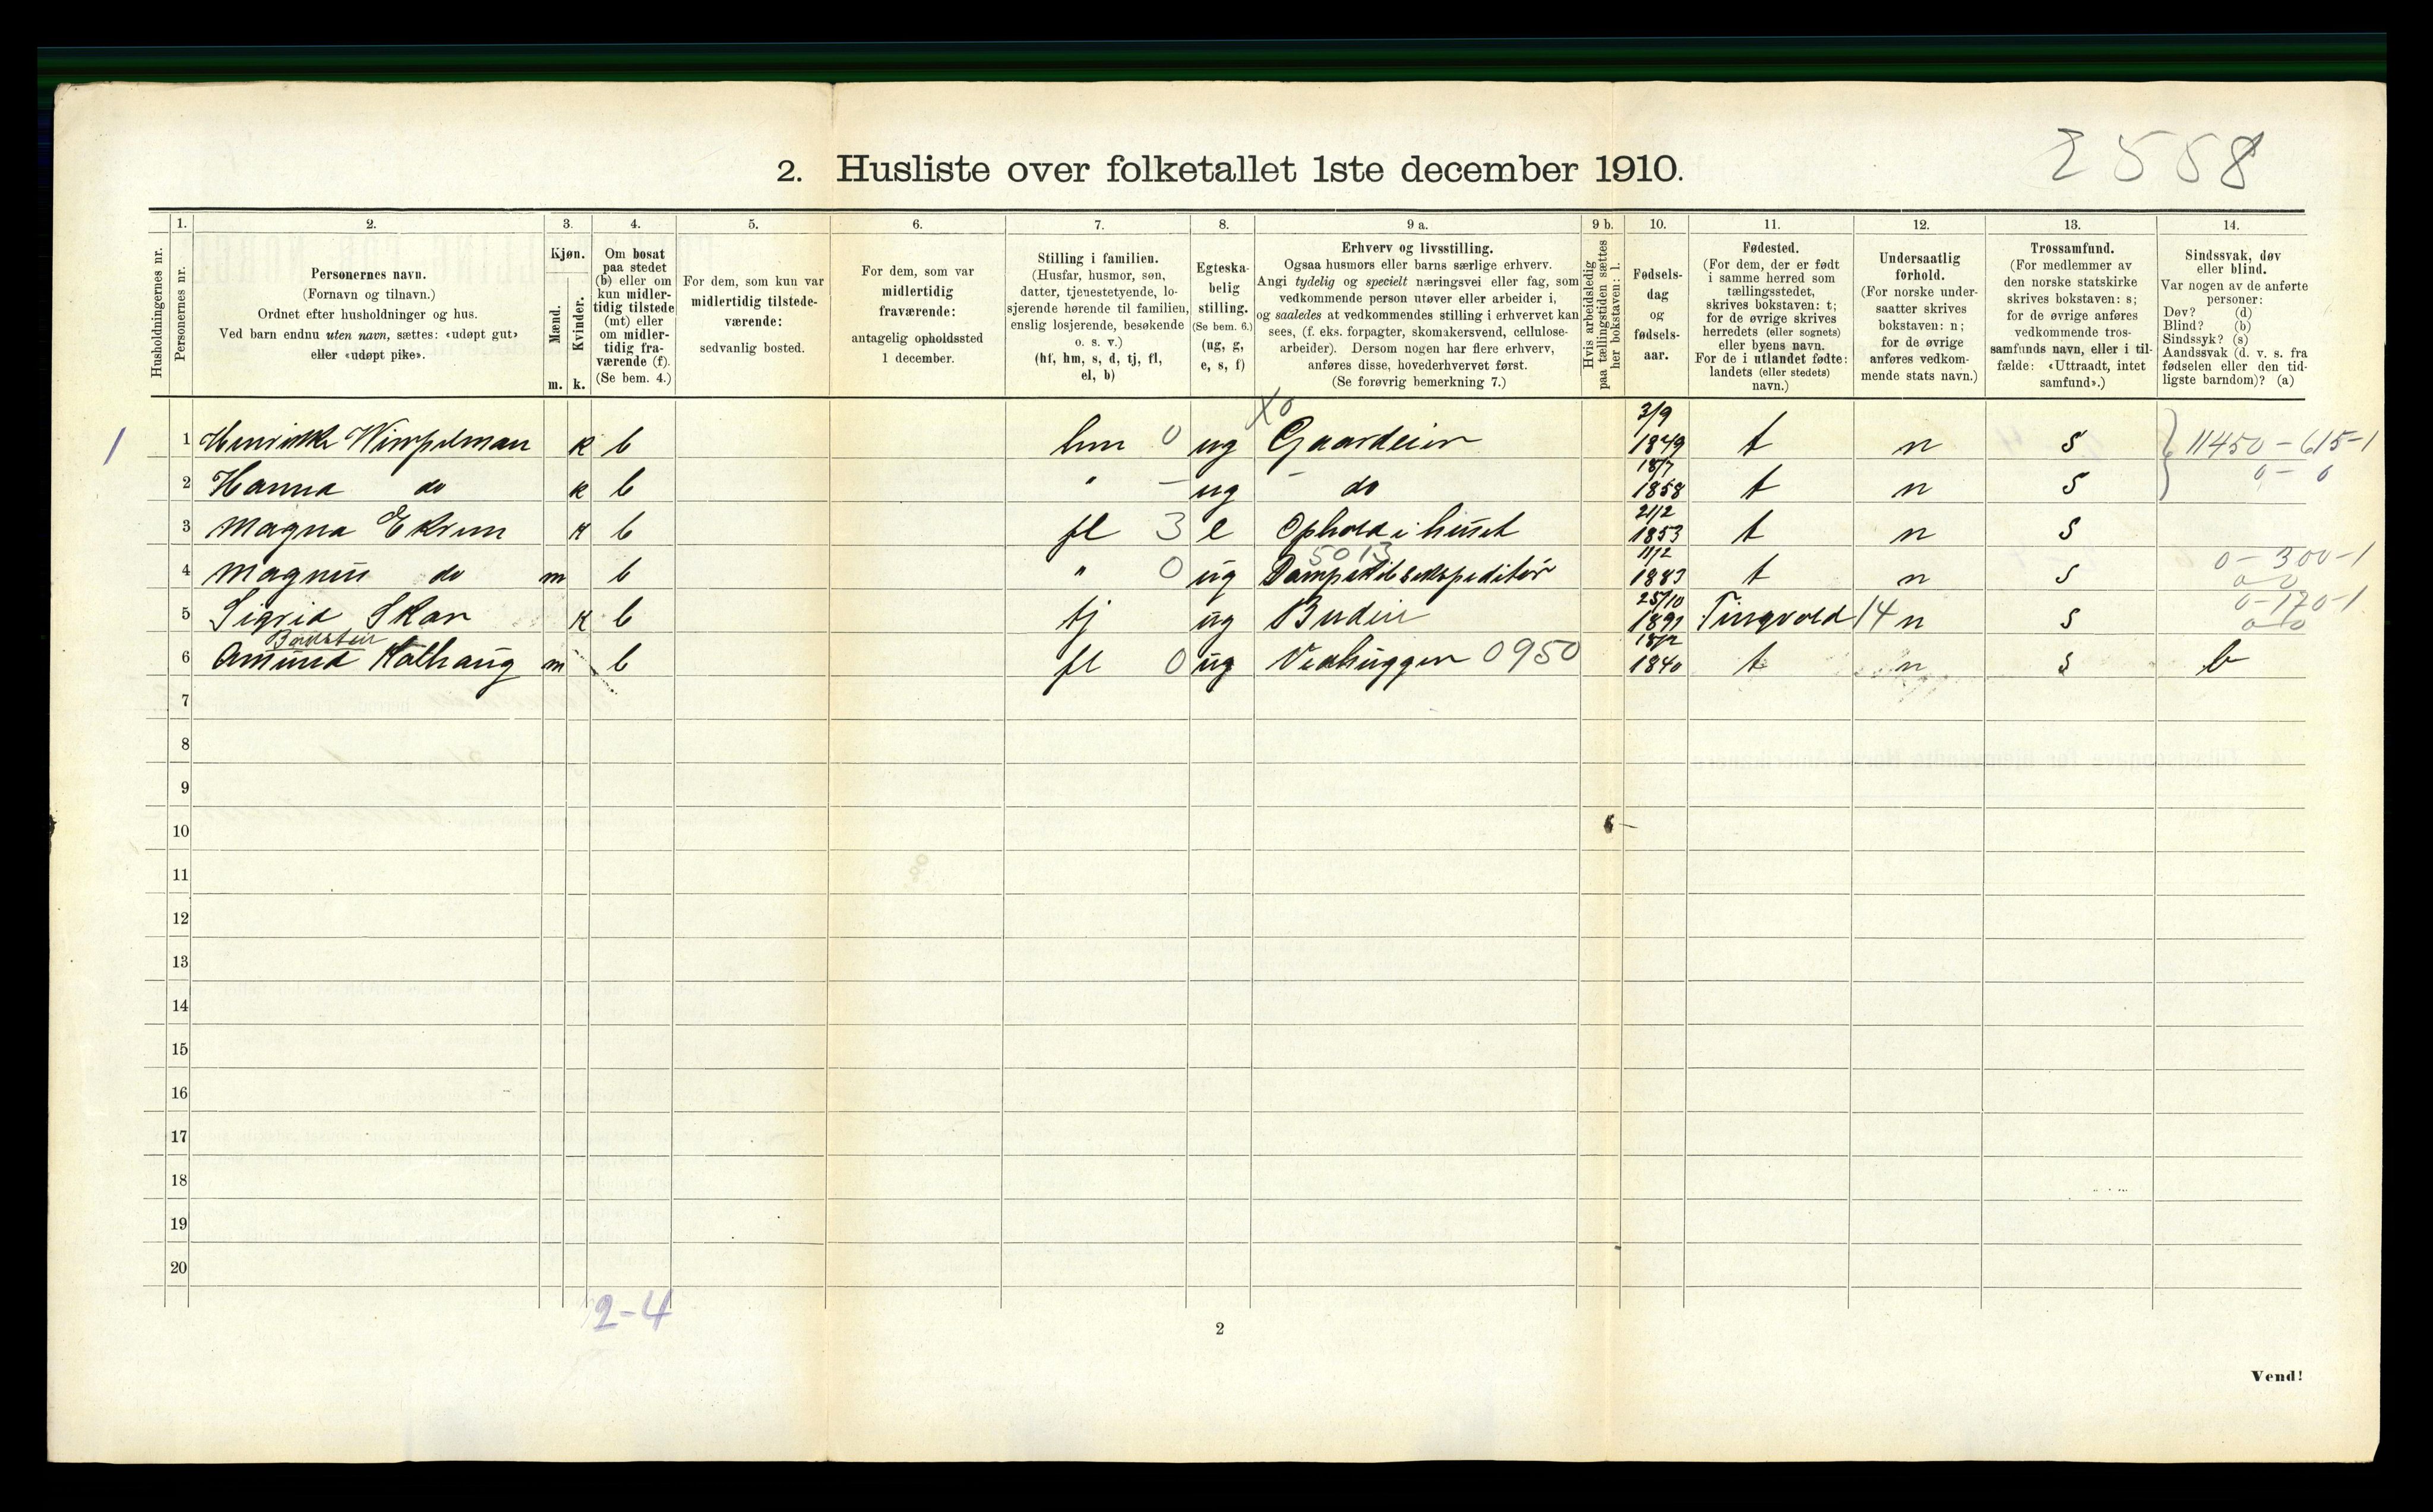 2558
2. Husliste over folketallet 1ste december 1910.
1. 2. 3. 4. 5. 6. 7. 8. 9 a. 9 b. 10. 11. 12. 13. 14.
Husholdningernes nr.
Personernes nr.
Personernes navn.
(Fornavn og tilnavn.)
Ordnet efter husholdninger og hus.
Ved barn endnu uten navn, sættes: «udøpt gut»
eller «udøpt pike».
Kjøn.
Mænd.
Kvinder.
m. k.
Om bosat
paa stedet
(b) eller om
kun midler-
tidig tilstede
(mt) eller
om midler-
tidig fra-
værende (f).
(Se bem. 4.)
For dem, som kun var
midlertidig tilstede-
værende:
sedvanlig bosted.
For dem, som var
midlertidig
fraværende:
antagelig opholdssted
1 december.
Stilling i familien.
(Husfar, husmor, søn,
datter, tjenestetyende, lo-
sjerende hørende til familien,
enslig losjerende, besøkende
o. s. v.)
(hf, hm, s, d, tj, fl,
el, b)
Egteska-
belig
stilling.
(Se bem. 6.)
(ug, g,
e, s, f)
Erhverv og livsstilling.
Ogsaa husmors eller barns særlige erhverv.
Angi tydelig og specielt næringsvei eller fag, som
vedkommende person utøver eller arbeider i,
og saaledes at vedkommendes stilling i erhvervet kan
sees, (f. eks. forpagter, skomakersvend, cellulose-
arbeider). Dersom nogen har flere erhverv,
anføres disse, hovederhvervet først.
(Se forøvrig bemerkning 7.)
Hvis arbeidsledig
paa tællingstiden sættes
her bokstaven: l.
Fødsels-
dag
og
fødsels-
aar.
Fødested.
(For dem, der er født
i samme herred som
tællingsstedet,
skrives bokstaven: t;
for de øvrige skrives
herredets (eller sognets)
eller byens navn.
For de i utlandet fødte:
landets (eller stedets)
navn.)
Undersaatlig
forhold.
(For norske under-
saatter skrives
bokstaven: n;
for de øvrige
anføres vedkom-
mende stats navn.)
Trossamfund.
(For medlemmer av
den norske statskirke
skrives bokstaven: s;
for de øvrige anføres
vedkommende tros-
samfunds navn, eller i til-
fælde: «Uttraadt, intet
samfund».)
Sindssvak, døv
eller blind.
Var nogen av de anførte
personer:
Døv? (d)
Blind? (b)
Sindssyk? (s)
Aandssvak (d. v. s. fra
fødselen eller den tid-
ligste barndom)? (a)
X0 3/9
1 1 Henrikke Wimpelman k b hm 0 ug Gaardeier 1849 t n s 11450 - 615-1
18/7 0 - 0
2 Hanna do k b " - ug - do 1858 t n s
21/2
3 Magna Ekren k b fl 3 e Ophold i huset 1853 t n s
5013 11/2 0 - 300-1
4 Magnus do m b " 0 ug Dampskibsekspeditör 1883 t n s 0-0
25/10 0-170-1
5 Sigrid Skar k b tj ug Budeie 1891 Tingvold 14 n s 0-0
18/2
6 Amund Kalhaug m b fl 0 ug Vedhugger 0950 1840 t n s b
7
8
9
10
11
12
13
14
15
16
17
18
19
20
2-4
2
Vend!